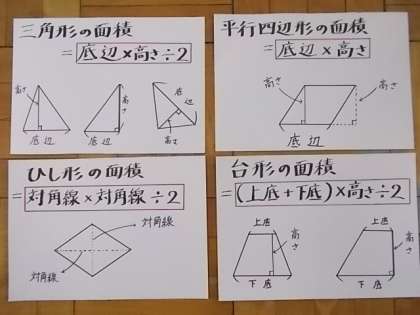 三角形の面積
=底辺×高さ÷2
高さ
底辺
高さ
底辺
底辺
高さ
平行四辺形の面積
=底辺×高さ
高さ
高さ
底辺
ひし形の面積
=対角線×対角線÷2
対角線
対角線
台形の面積
=(上底+下底)×高さ÷2
上底
高さ
下底
上底
高さ
下底